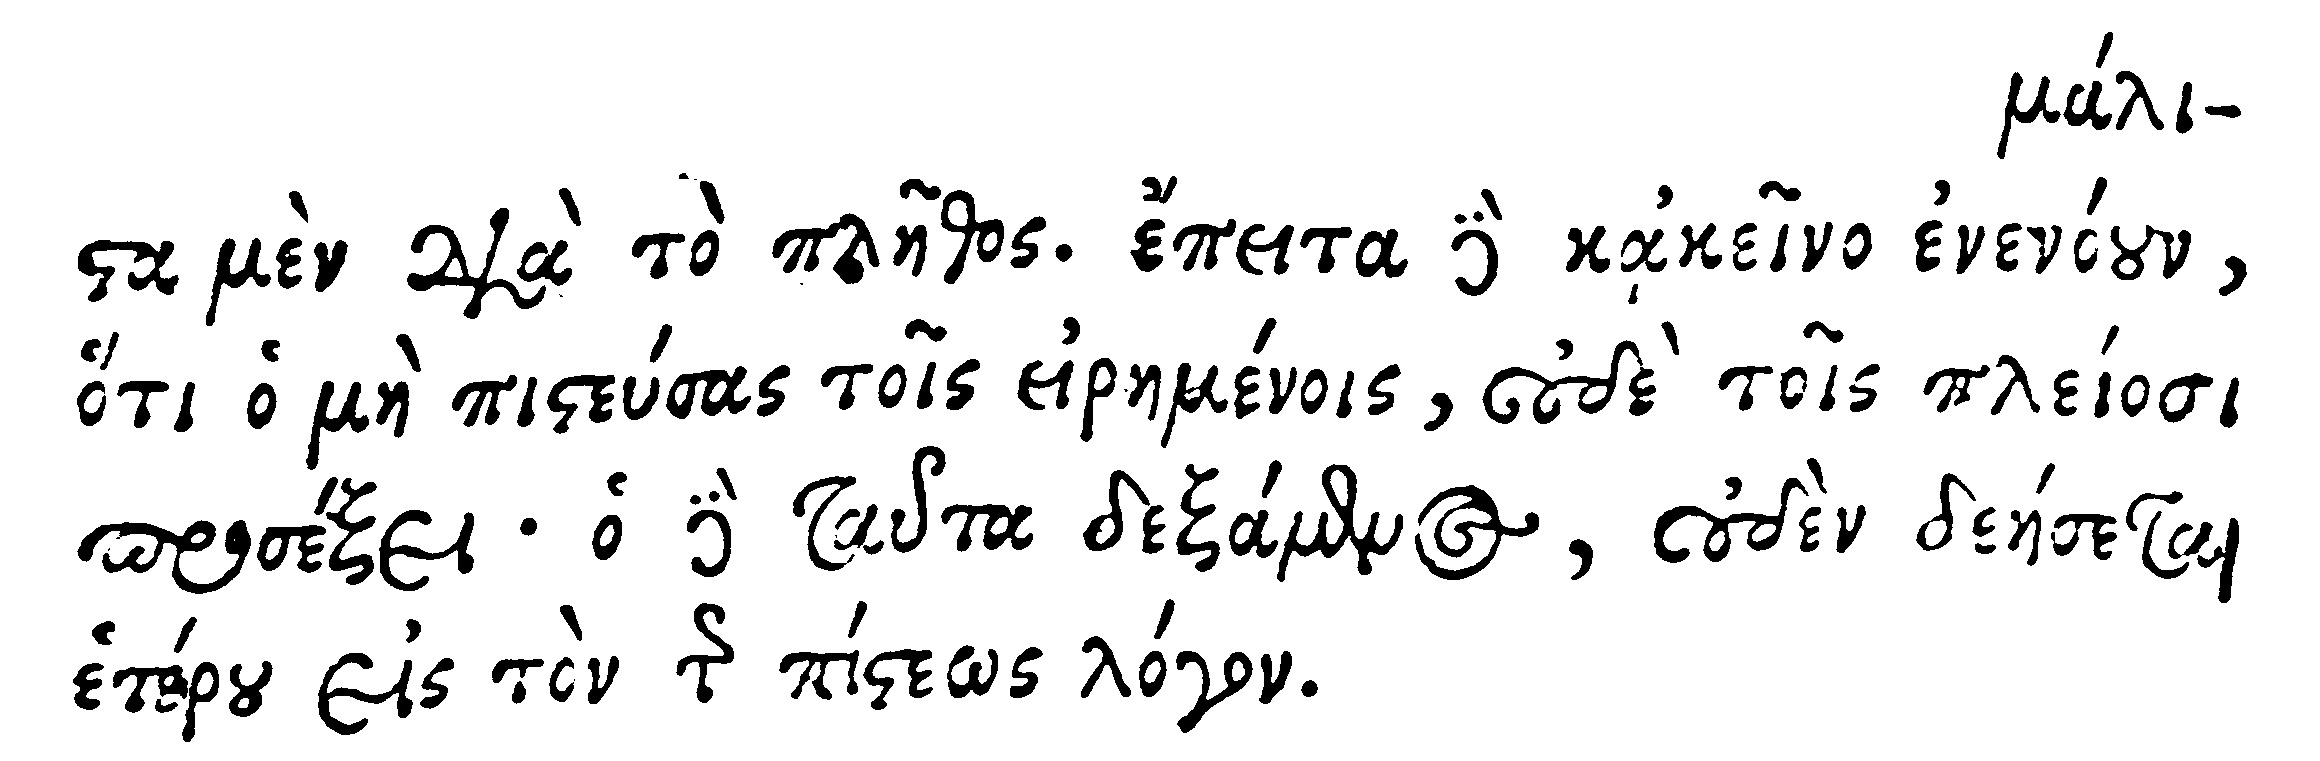 μάλι-
ϛα μὲν διὰ τὸ πλῆθος. ἔπειτα δὲ κᾀκεῖνο ἐνενόȣν,
ὅτι ὁ μὴ πιϛεύσας τοῖς εἰρημένοις, οὐδὲ τοῖς πλείοσι
προσέξει· ὁ δὲ ταῦτα δεξάμενος, οὐδὲν δεήσεται
ἑτέρȣ εἰς τὸν τῆς πίϛεως λόγον.